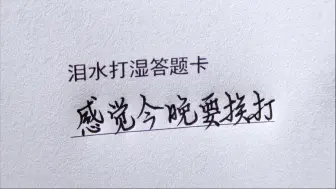 泪水打湿答题卡
感觉今晚要挨打